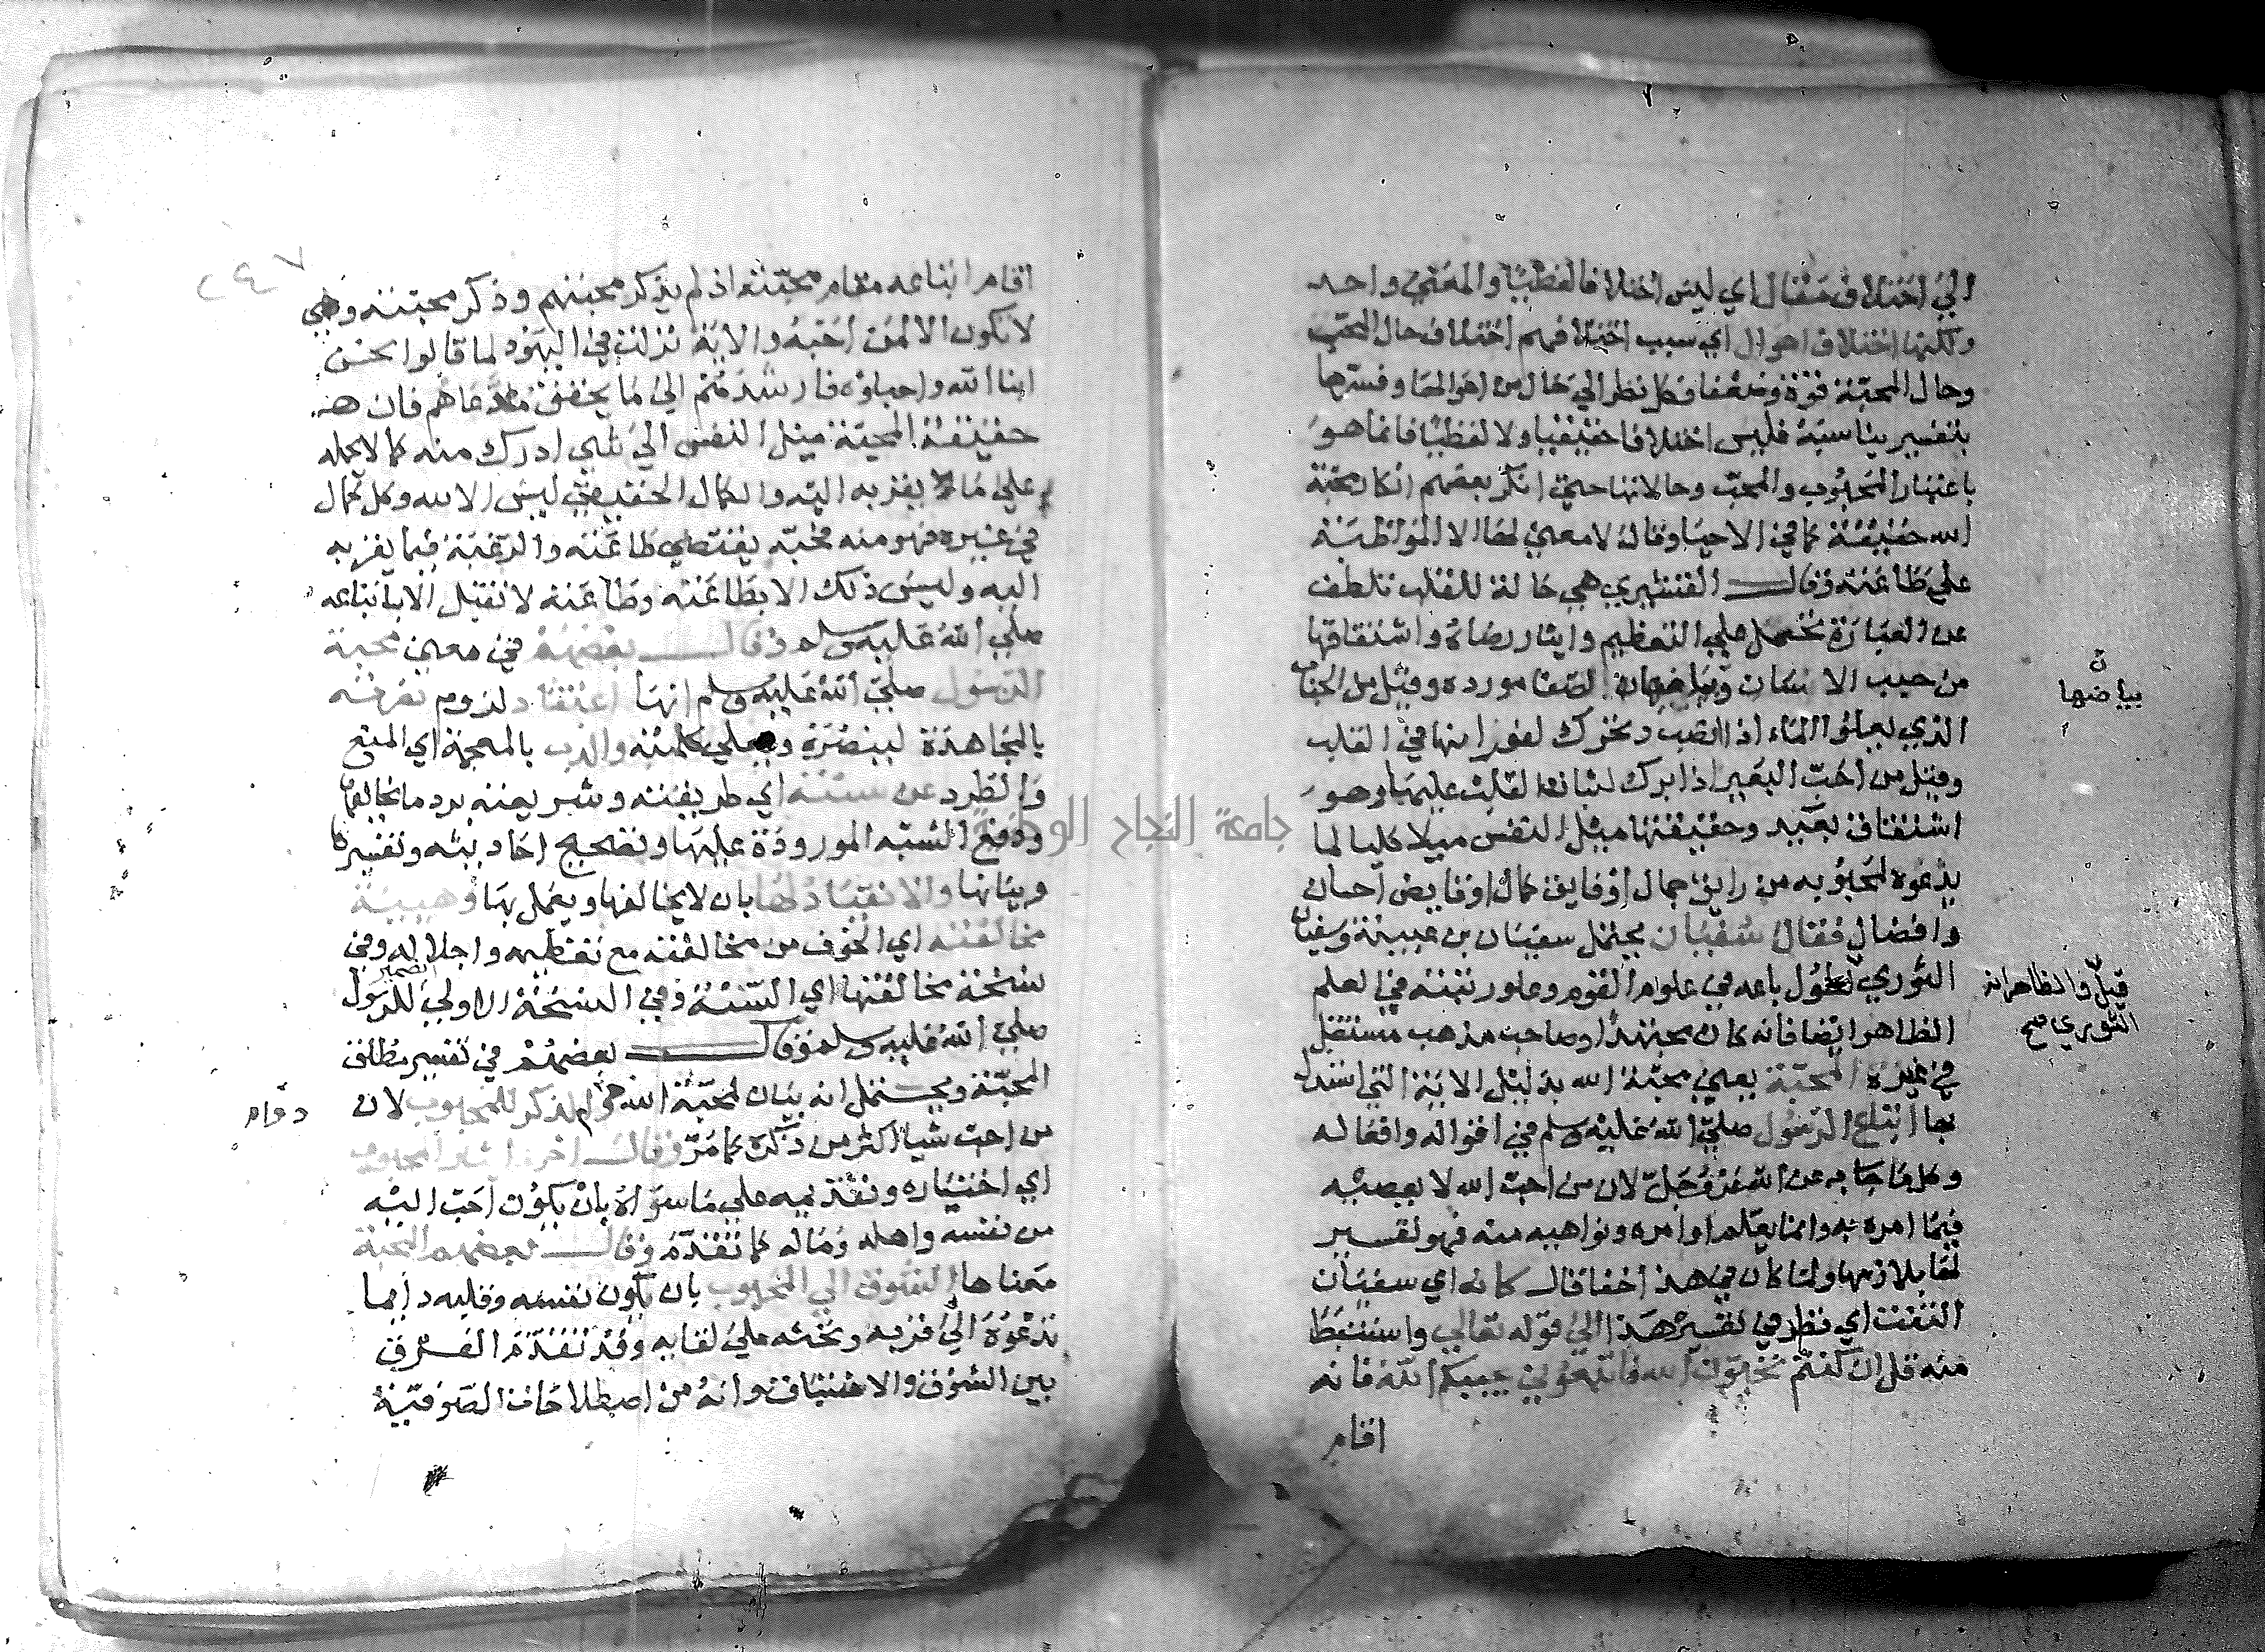 الي اختلاف مقال اي ليس اختلافا لفظيا والمعني واحد
ولكنها اختلاف احوال اي سبب اختلافهم اختلاف حال المحب
وحال المحبة قوة وضعفا فكل نظر الي حال من احوالها وفسرها
بتفسير يناسبه فليس اختلافا حقيقيا ولا لفظيا فانما هو
باعتبار المحبوب والمحب وحالاتها حتي انكر بعضهم انكار محبة
الله حقيقة كما في الاحيا وقال لا معني لها الا المواظبة
علي طاعته وقال القشيري هي حالة للقلب تلطف
عن العبارة تحمل علي التعظيم وايثار رضاه واشتقاقها
من حبب الاسنان لصفا مورده وقيل من الحباب
الذي يعلو الماء اذا انصب وتحرك لفورانها في القلب
وقيل من احب البعير اذا برك لثباتها لقلب عليها وهو
اشتقاق بعيد وحقيقتها ميل النفس ميلا كليا لما
يدعوه لمحبوبه من رايق جمال او فايق كمال او فايض احسان
وافضال فقال سفيان يحتمل سفيان بن عيينة وسفيان
الثوري لطول باعه في علوم القوم وعلو رتبته في العلم
الظاهر ايضا فانه كان مجتهدا وصاحب مذهب مستقل
في عصره المحبة يعني محبة الله بدليل الاية التي استدل
بها اتباع الرسول صلي الله عليه وسلم في اقواله وافعاله
وكل ما جا به عن الله عز وجل لان من احب الله لا يعصيه
فيما امره به وانما يعلم اوامره ونواهيه منه فهو تفسير
لها بلازمها ولما كان في هذا خفا قال كانه اي سفيان
التفت اي نظر في تفسيره هذا الي قوله تعالي واستنبط
منه قل ان كنتم تحبون الله فاتبعوني يحببكم الله فانه
اقام
ن
بياضها
قيل والظاهر انه
الثوري صح
٢٤٧
اقام اتباعه مقام محبته اذ لم يذكر محبتهم وذكر محبته وهي
لا تكون الا لمن احبه والاية نزلت في اليهود لما قالوا نحن
ابنا الله واحباؤه فارشدهم الي ما يحقق مدعاهم فان
حقيقة المحبة ميل النفس الي شي ادرك منه كمالا يحمله
علي ما يقربه اليه والكمال الحقيقي ليس الا لله وكل كمال
في غيره فهو منه فمحبته يقتضي طاعته والرغبة فيما يقربه
اليه وليس ذلك الا بطاعته وطاعته لا تقبل الا باتباعه
صلي الله عليه وسلم وقال بعضهم في معني محبة
الرسول صلي الله عليه وسلم انها اعتقاد لزوم نصرته
بالمجاهدة لينصره ويعلي كلمته والذب بالمعجمة اي المنع
والطرد عن سنته اي طريقته وشريعته برد ما يخالفها
ودفع الشبه المورودة عليها وتصحيح احاديثه وتفسيرها
وبيانها والانقياد لها بان لا يخالفها ويعمل بها وهيبة
مخالفته اي الخوف من مخالفته مع تعظيمه واجلاله وفي
نسخة مخالفتها اي السنة وفي النسخة الاولي الضمير للرسول
صلي الله عليه وسلم وقال بعضهم في تفسير مطلق
المحبة ويحتمل انه بيان لمحبة الله دوام الذكر للمحبوب لان
دوام
من احب شيا اكثر من ذكره كما مر وقال اخر ايثار المحبوب
اي اختياره وتقديمه علي ما سواه بان يكون احب اليه
من نفسه واهله وماله كما تقدم وقال بعضهم المحبة
معناها الشوق الي المحبوب بان تكون نفسه وقلبه دايما
تدعوه الي قربه وتحثه علي لقايه وقد تقدم الفرق
بين الشوق والاشتياق وانه من اصطلاحات الصوفية
جامعة النجاح الوطنية